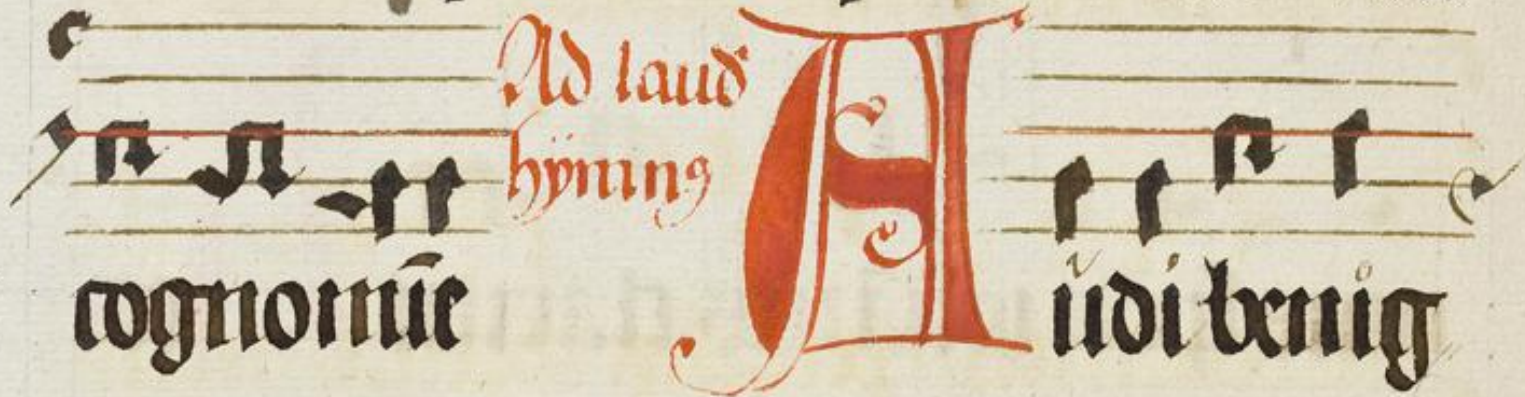 cognomīe
Ad laud
hÿmnꝰ
Audi benig